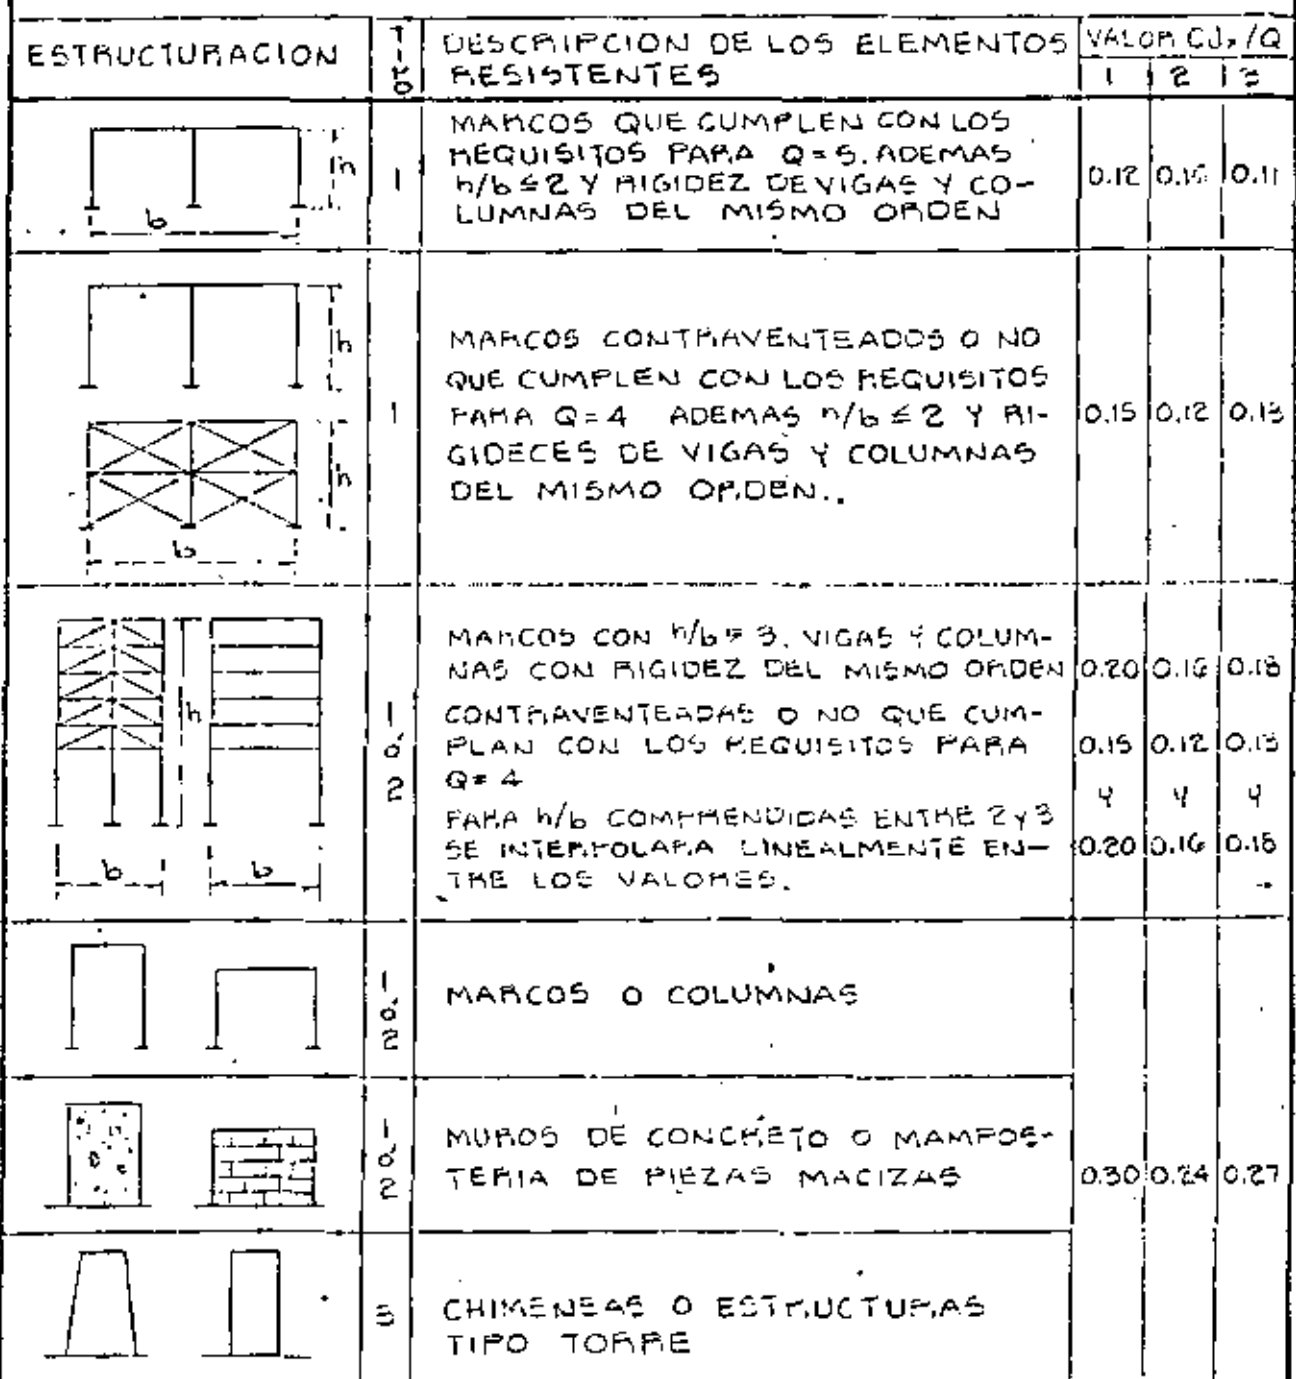 ESTRUCTURACION
TIPO
DESCRIPCION DE LOS ELEMENTOS
RESISTENTES
VALOR
1 2 3
h
b
1
MARCOS QUE CUMPLEN CON LOS
REQUISITOS PARA Q=5. ADEMAS
h/b ≤ 2 Y RIGIDEZ DE VIGAS Y CO-
LUMNAS DEL MISMO ORDEN
0.12 0.11
h
h
b
1
MARCOS CONTRAVENTEADOS O NO
QUE CUMPLEN CON LOS REQUISITOS
PARA Q=4 ADEMAS h/b ≤ 2 Y RI-
GIDECES DE VIGAS Y COLUMNAS
DEL MISMO ORDEN..
0.15 0.12 0.13
h
b b
1
ó
2
MARCOS CON h/b = 3. VIGAS Y COLUM-
NAS CON RIGIDEZ DEL MISMO ORDEN
0.20 0.16 0.18
CONTRAVENTEADAS O NO QUE CUM-
PLAN CON LOS REQUISITOS PARA
Q= 4
0.15 0.12 0.13
Y Y Y
PARA h/b COMPRENDIDAS ENTRE 2 Y 3
SE INTERPOLARA LINEALMENTE EN-
TRE LOS VALORES.
0.20 0.16 0.18
1
ó
2
MARCOS O COLUMNAS
1
ó
2
MUROS DE CONCRETO O MAMPOS-
TERIA DE PIEZAS MACIZAS
0.30 0.24 0.27
3
CHIMENEAS O ESTRUCTURAS
TIPO TORRE